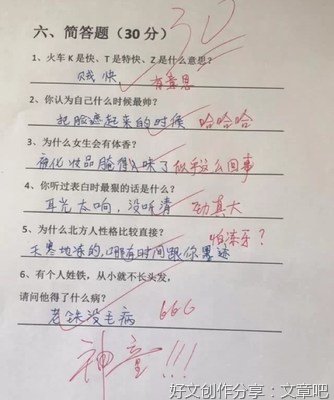 六、简答题（30分）
30
1、火车K是快、T是特快、Z是什么意思？
贼快
有意思
2、你认为自己什么时候最帅？
把脸遮起来的时候
哈哈哈
3、为什么女生会有体香？
被化妆品腌得入味了
似乎这么回事
4、你听过表白时最狠的话是什么？
耳光太响，没听清
劲真大
5、为什么北方人性格比较直接？
怕冻牙？
天寒地冻的，哪有时间跟你墨迹
6、有个人姓铁，从小就不长头发，
请问他得了什么病？
老铁没毛病
666
神童!!!
好文创作分享：文章吧